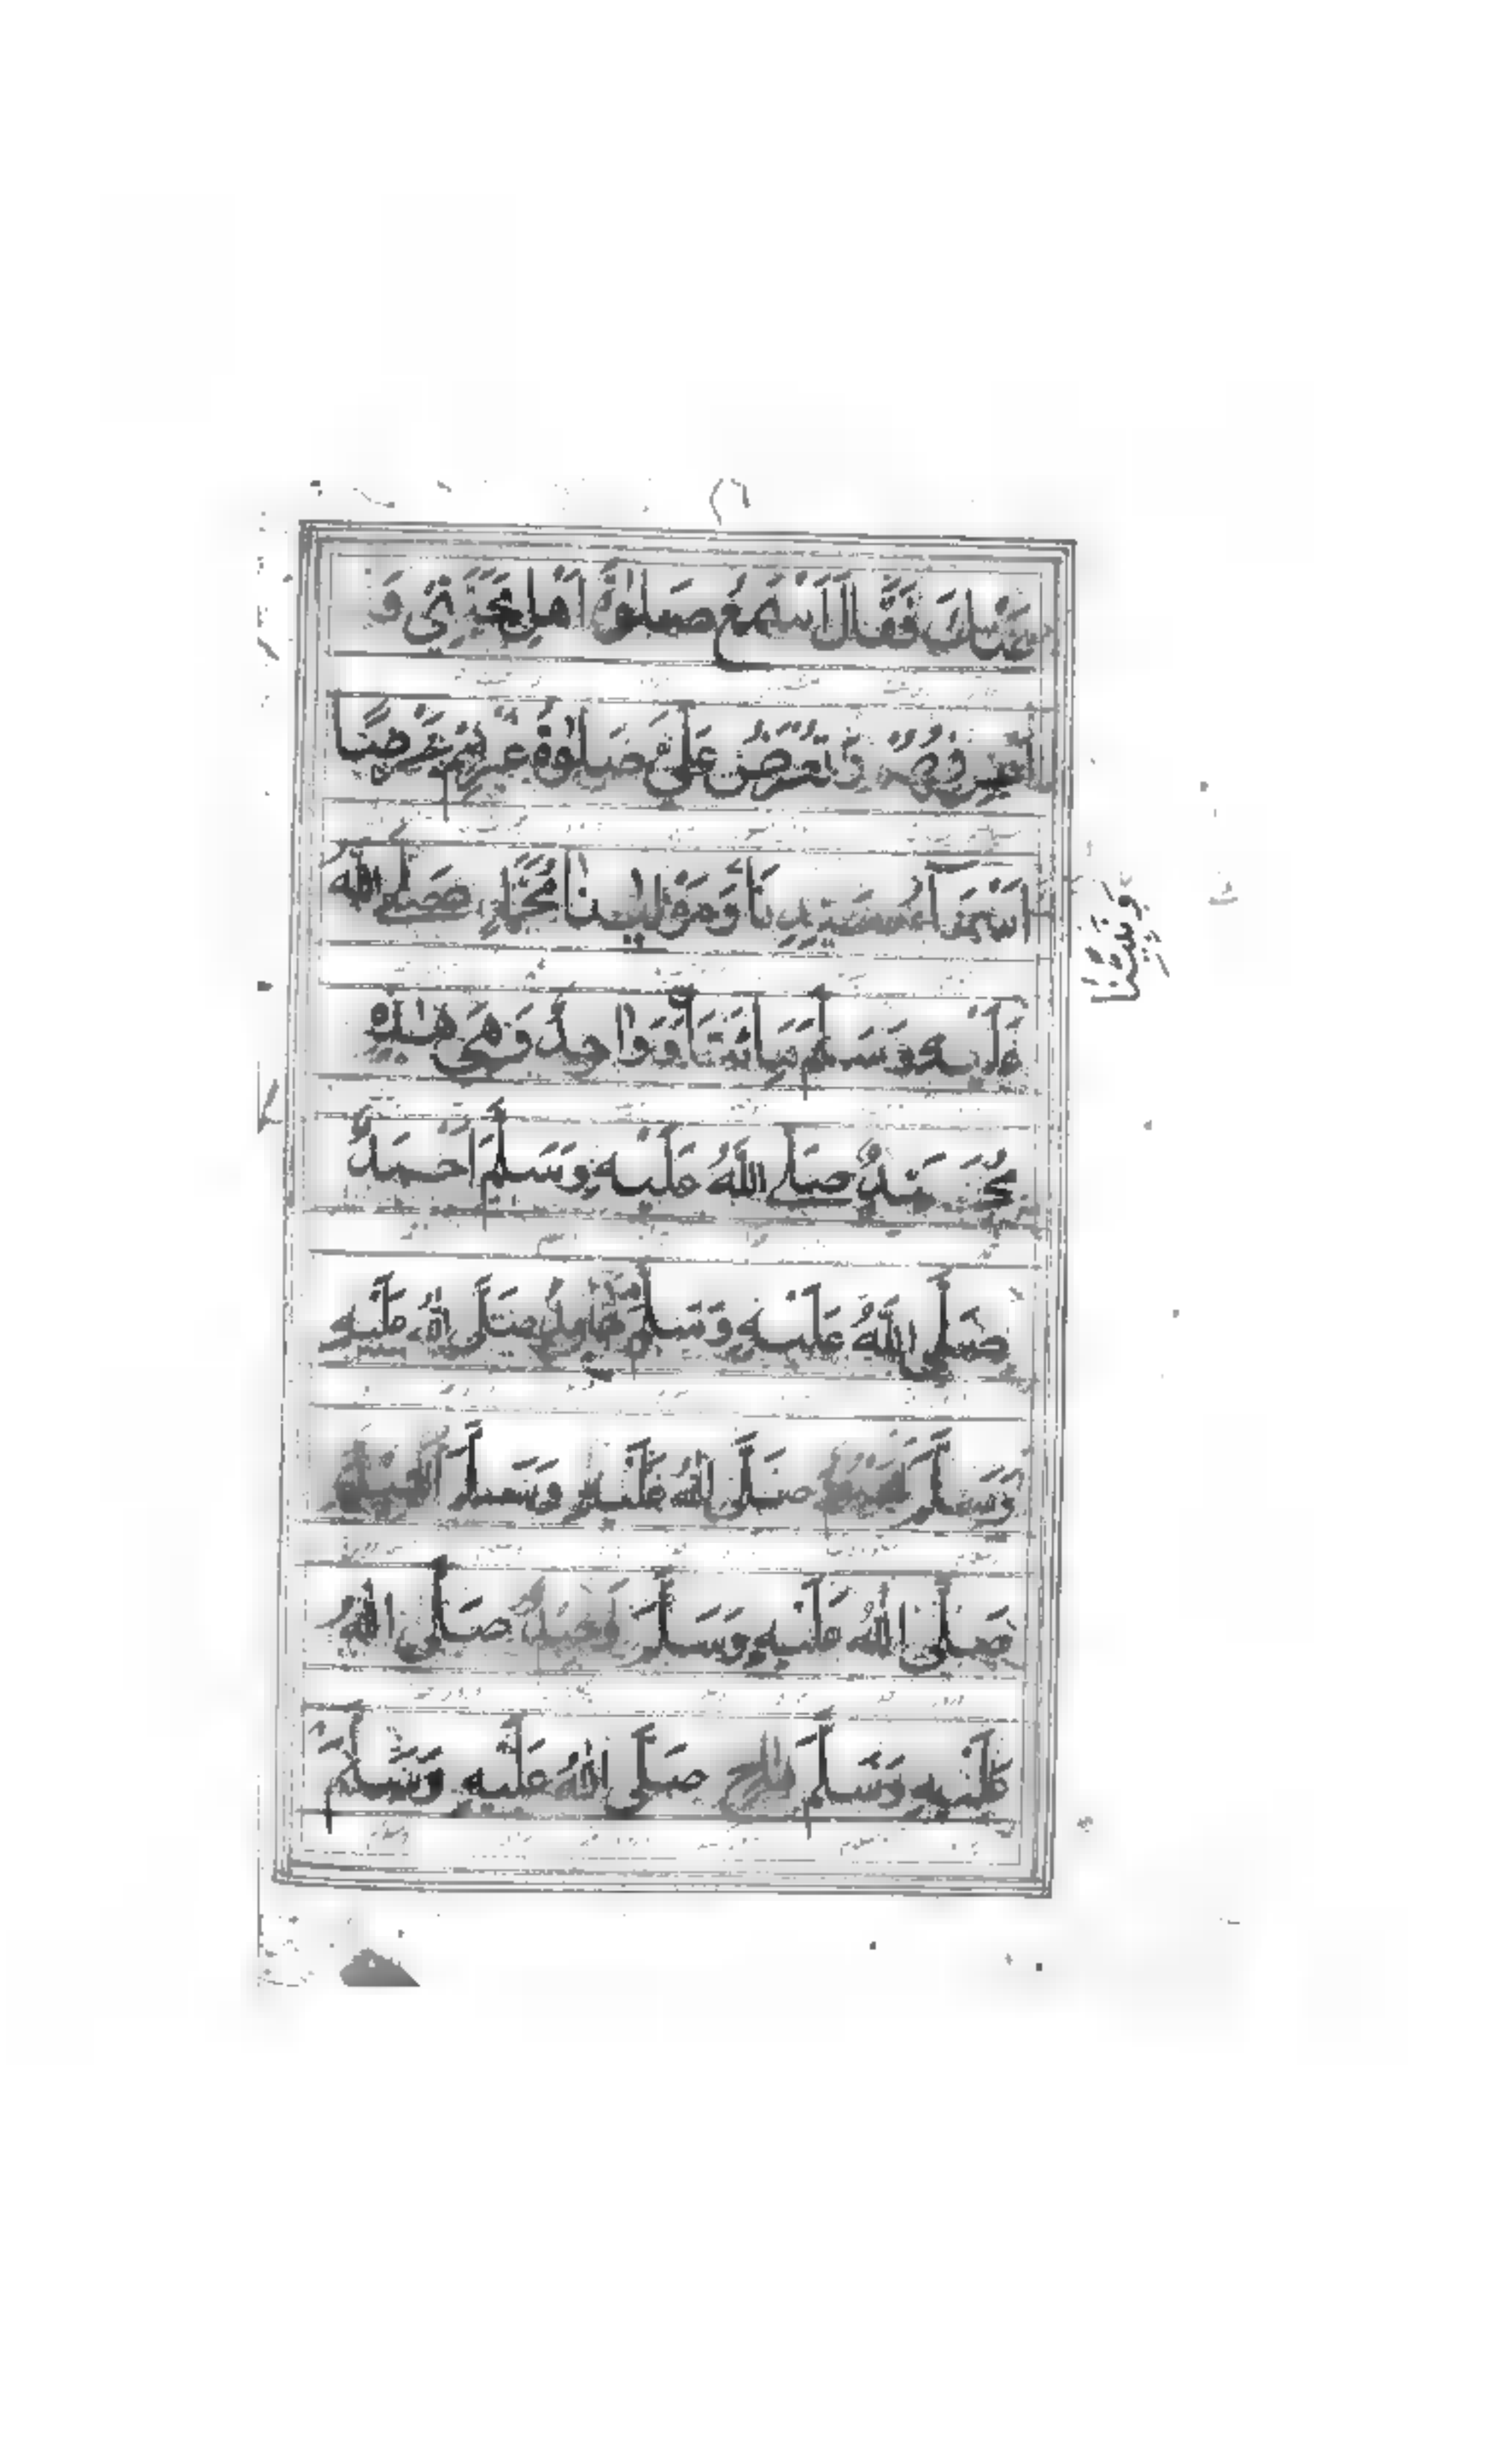 عِنْدَكَ فَقَالَ اَسْمَعُ صَلٰوةَ اَهْلِ مَحَبَّتِي وَ
اَعْرِفُهُمْ وَتُعْرَضُ عَلَيَّ صَلٰوةُ غَيْرِهِمْ عَرْضًا
اَسْمَآءُ سَيِّدِنَا وَمَوْلٰينَا مُحَمَّدٍ صَلَّى اللّٰهُ
وَنَبِيِّنَا
عَلَيْهِ وَسَلَّمَ مِائَتَانِ وَوَاحِدٌ وَهِيَ هٰذِهِ
مُحَمَّدٌ صَلَّى اللّٰهُ عَلَيْهِ وَسَلَّمَ اَحْمَدُ
صَلَّى اللّٰهُ عَلَيْهِ وَسَلَّمَ حَامِدٌ صَلَّى اللّٰهُ عَلَيْهِ
وَسَلَّمَ صَلَّى اللّٰهُ عَلَيْهِ وَسَلَّمَ
صَلَّى اللّٰهُ عَلَيْهِ وَسَلَّمَ وَحِيدٌ صَلَّى اللّٰهُ
عَلَيْهِ وَسَلَّمَ مَاحٍ صَلَّى اللّٰهُ عَلَيْهِ وَسَلَّمَ